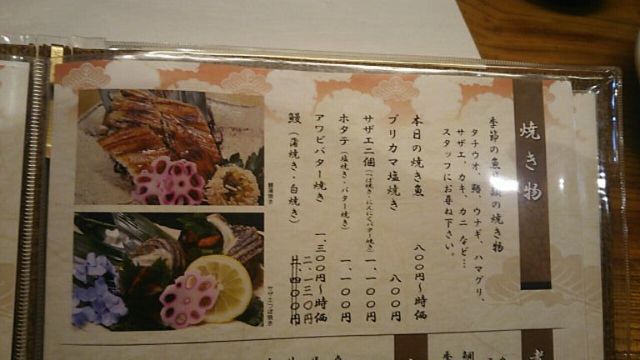 焼き物
季節の魚や鍋の焼き物
タチウオ、鯵、ウナギ、ハマグリ、
サザエ、カキ、カニ など…
スタッフにお尋ね下さい。
本日の焼き魚 八〇〇円～時価
ブリカマ塩焼き 八〇〇円
サザエ二個(つぼ焼き・にんにくバター焼き) 一、一〇〇円
ホタテ(塩焼き・バター焼き) 一、一〇〇円
アワビバター焼き 一、三〇〇円～時価
鰻(蒲焼き・白焼き) 二、一三〇円
鰻蒲焼き
サザエつぼ焼き